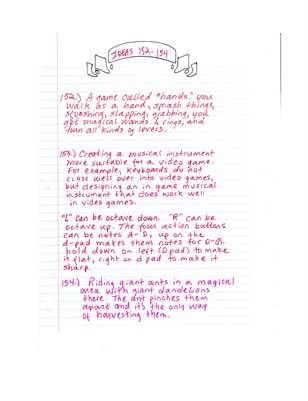 IDEAS 152-154
152.) A game called "hands." you
walk as a hand, smash things,
squashing, slapping, grabbing, you
get magical wands & rings, and
turn all kinds of levers.
153.) Creating a musical instrument
more suitable for a video game.
For example, keyboards do not
cross well over into video games,
but designing an in game musical
instrument that does work well
in video games.
"L" can be octave down. "R" can be
octave up. The four action buttons
can be notes A-D, up on the
d-pad makes them notes for D-G.
hold down on left (D pad) to make
it flat, right on d pad to make it
sharp.
154.) Riding giant ants in a magical
area with giant dandelions
there. The ant pinches them
apart and it's the only way
of harvesting them.